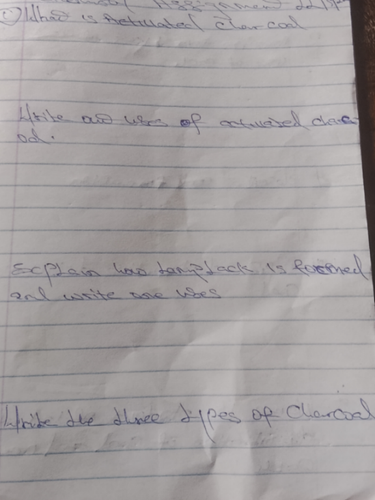 Assignment
① What is Activated charcoal
Write use of activated charc
oal.
Explain how lampblack is formed
and write one uses
Write the three types of Charcoal